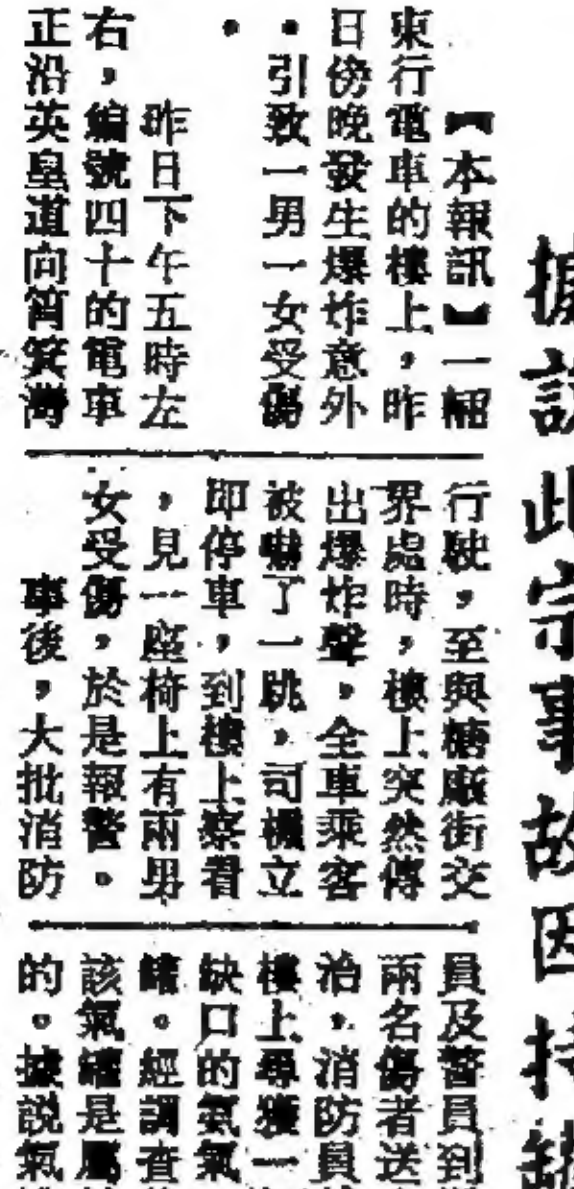 據說此宗事故因持罐
【本報訊】一輛
東行電車的樓上，昨
日傍晚發生爆炸意外
，引致一男一女受傷
。
昨日下午五時左
右，編號四十的電車
正沿英皇道向筲箕灣
行駛，至與糖廠街交
界處時，樓上突然傳
出爆炸聲，全車乘客
被嚇了一跳，司機立
即停車，到樓上察看
，見一座椅上有兩男
女受傷，於是報警。
事後，大批消防
員及警員到
兩名傷者送
治，消防員
樓上尋獲一
缺口的氣氣
罐。經調查
該氣罐是屬
的。據說氣